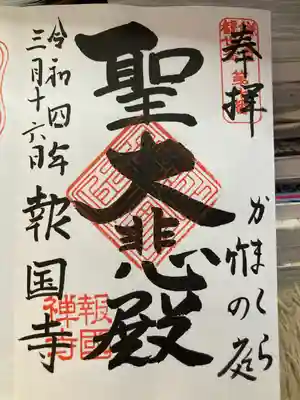 奉拝
かまくら
竹の庭
聖大悲殿
報國
禅寺
令和四年
三月十六日
報国寺